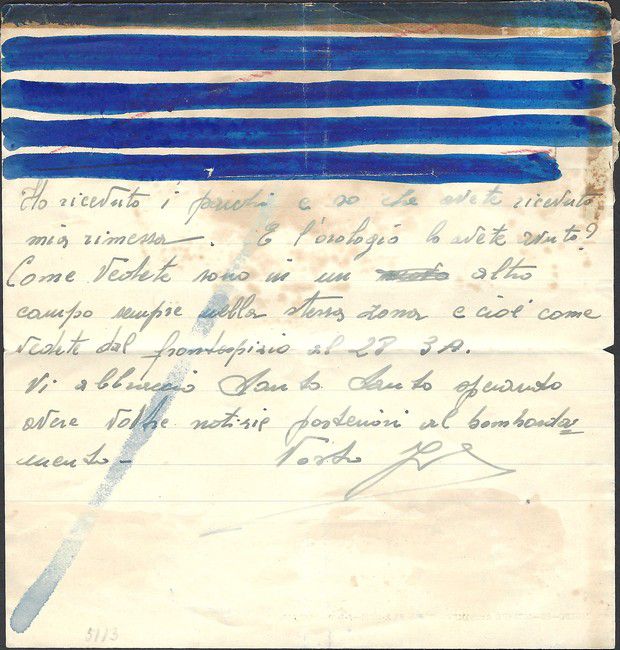 Ho ricevuto i pacchi e so che avete ricevuto
mia rimessa. E l'orologio lo avete avuto?
Come vedete sono in un altro
campo sempre nella stessa zona e cioè come
vedete dal frontespizio al 28 3A.
Vi abbraccio tanto tanto sperando
avere vostre notizie posteriori al bombarda=
mento - Vostro
3113